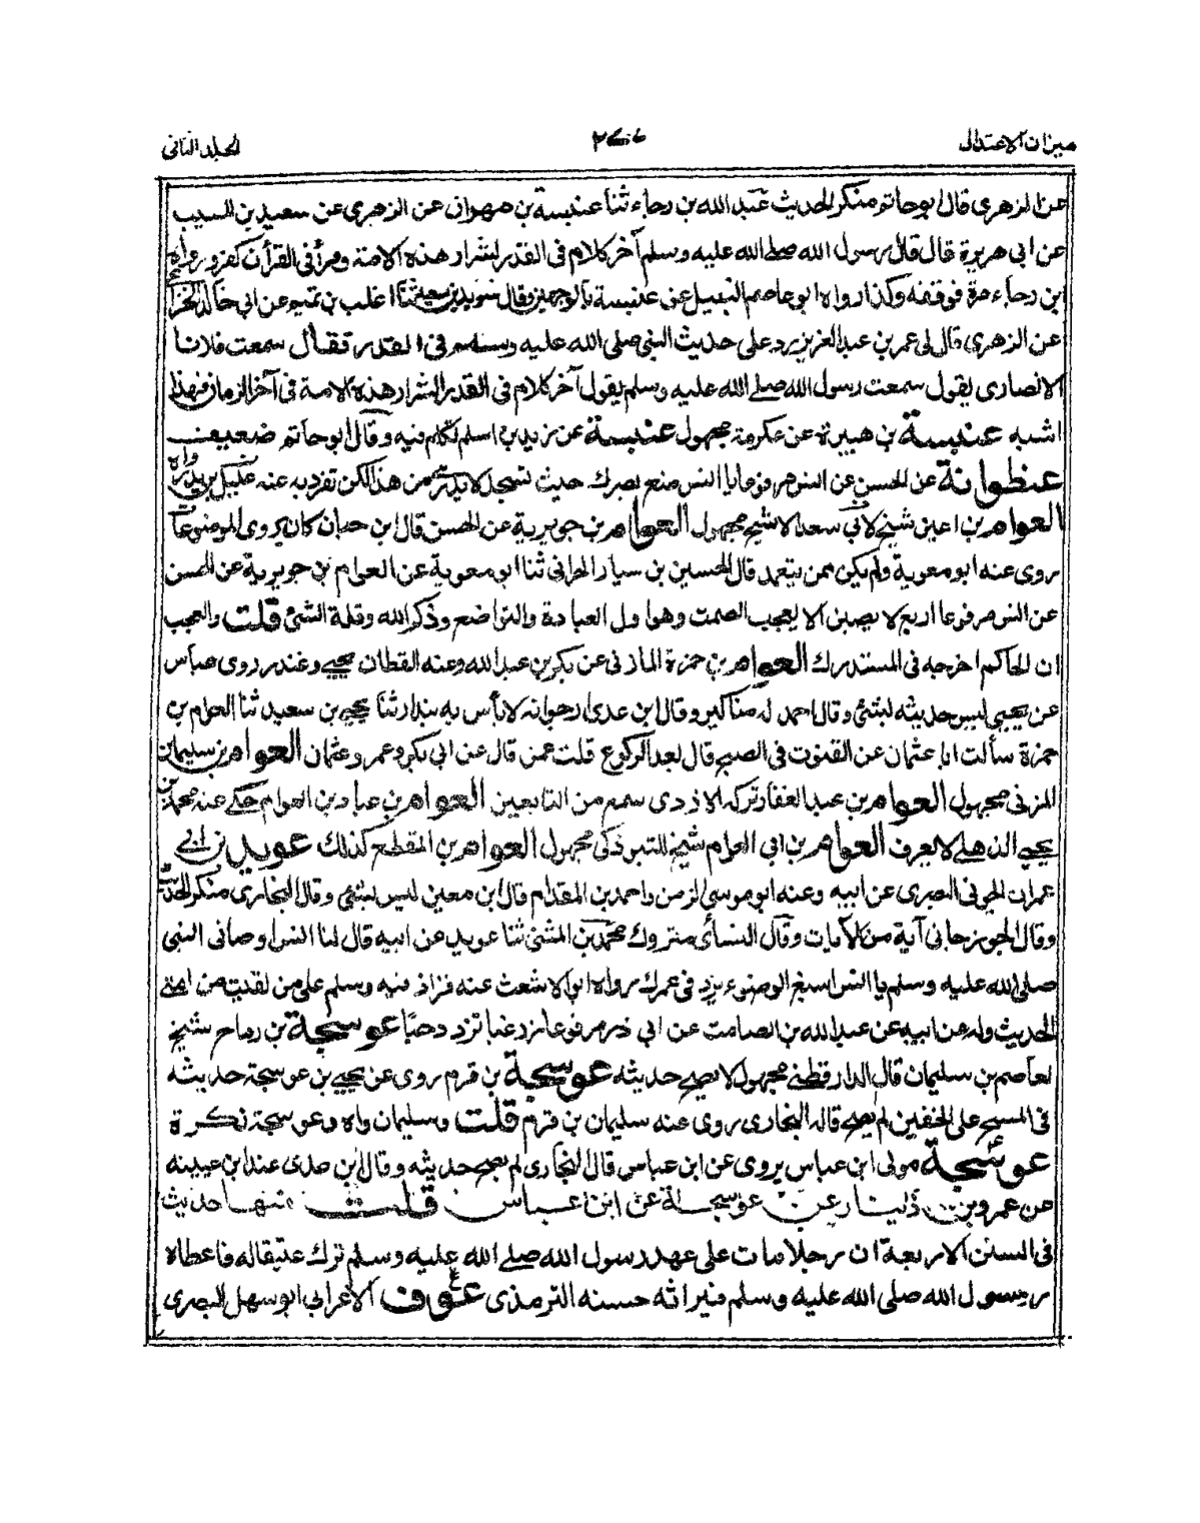 ميزان الاعتدال
الجلد الثانى
عن الزهرى قال ابو حاتم منكر الحديث عبد الله بن رجاء ثنا عنبسة بن مهران عن الزهرى عن سعيد بن المسيب
عن ابى هريرة قال قال رسول الله صلى الله عليه وسلم آخر كلام فى القدر لشرار هذه الامة ومرأ فى القرآن كفر ورواه
ابن رجاء مرة فوقفه وكذا رواه ابو عاصم النبيل عن عنبسة بالوجهين وقال سويد بن سعيد ثنا اغلب بن تميم عن ابى خالد الخزا
عن الزهرى قال لى عمر بن عبد العزيز يرد على حديث النبى صلى الله عليه وسلم فى القدر فقال سمعت فلانا
الانصارى يقول سمعت رسول الله صلے الله عليه وسلم يقول آخر كلام فى القدر لشرار هذه الامة فى آخر الزمان فهذا
اشبه عنبسة بن هبيرة عن عكرمة مجهول عنبسة عن زيد بن اسلم تكلم فيه وقال ابو حاتم ضعيف
عنطوانة عن الحسن عن انس مرفوعا يا انس ضع بصرك حيث تسجد لا يدرى من هذا لكن تفرد به عنه عليلة بن بدر واه
العوام بن اعين شيخ لابى سعد الاشج مجهول العوام بن جويرية عن الحسن قال ابن حبان كان يروى الموضوعات
روى عنه ابو معوية ولم يكن ممن يتعمد قال الحسين بن سيار الحرانى ثنا ابو معوية عن العوام بن جويرية عن الحسن
عن انس مرفوعا اربع لا يصبن الا بعجب الصمت وهو اول العبادة والتواضع وذكر الله وقلة الشئ قلت والعجب
ان الحاكم اخرجه فى المستدرك العوام بن حمزة المازنى عن بكر بن عبد الله وعنه القطان يحيى وغندر روى عباس
عن يحيى ليس حديثه بشئ وقال احمد له مناكير وقال ابن عدى ارجو انه لا بأس به بندار ثنا يحيى بن سعيد ثنا العوام بن
حمزة سألت ابا عثمان عن القنوت فى الصبح قال بعد الركوع قلت عمن قال عن ابى بكر وعمر وعثمان العوام بن سليمان
المزنى مجهول العوام بن عبد الغفار تركه الازدى سمع من التابعين العوام بن عباد بن العوام حكى عنه محمد بن
يحيى الذهلے لا يعرف العوام بن ابى العوام شيخ للتبوذكى مجهول العوام بن المقطع كذلك عوبد بن ابى
عمران الجونى البصرى عن ابيه وعنه ابو موسى الزمن واحمد بن المقدام قال ابن معين ليس بشئ وقال البخارى منكر الحديث
وقال الجوزجانى آية من الآيات وقال النسائى متروك محمد بن المثنى ثنا عوبد عن ابيه قال لنا انس اوصانى النبى
صلى الله عليه وسلم يا انس اسبغ الوضوء يزد فى عمرك رواه ابو الاشعث عنه فزاد فيه وسلم على من لقيت من امتى
الحديث وله عن ابيه عن عبد الله بن الصامت عن ابى ذر مرفوعا زر غبا تزدد حبا عوسجة بن رماح شيخ
لعاصم بن سليمان قال الدارقطنے مجهول لا يصح حديثه عوسجة بن قرم روى عن يحيى بن عوسجة حديثه
فى المسح على الخفين لم يصح قاله البخارى روى عنه سليمان بن قرم قلت وسليمان واه وعوسجة نكرة
عوسجة مولى ابن عباس يروى عن ابن عباس قال البخارى لم يصح حديثه وقال ابن عدى عند ابن عيينه
عن عمرو بن دينار عن عوسجة عن ابن عباس قلت منها حديث
فى السنن الاربعة ان رجلا مات على عهد رسول الله صلے الله عليه وسلم ترك عتيقا له فاعطاه
رسول الله صلى الله عليه وسلم ميراثه حسنه الترمذى عوف الاعرابى ابو سهل البصرى